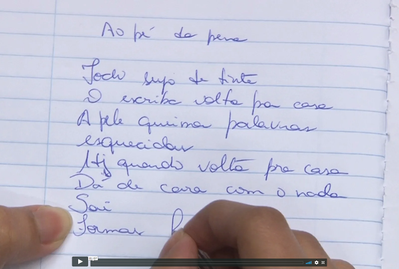 Ao pé da pena
Todo sujo de tinta
O escriba volta pra casa
A pele palavras
esquecidas
quando volta pra casa
Dá de cara com o nada